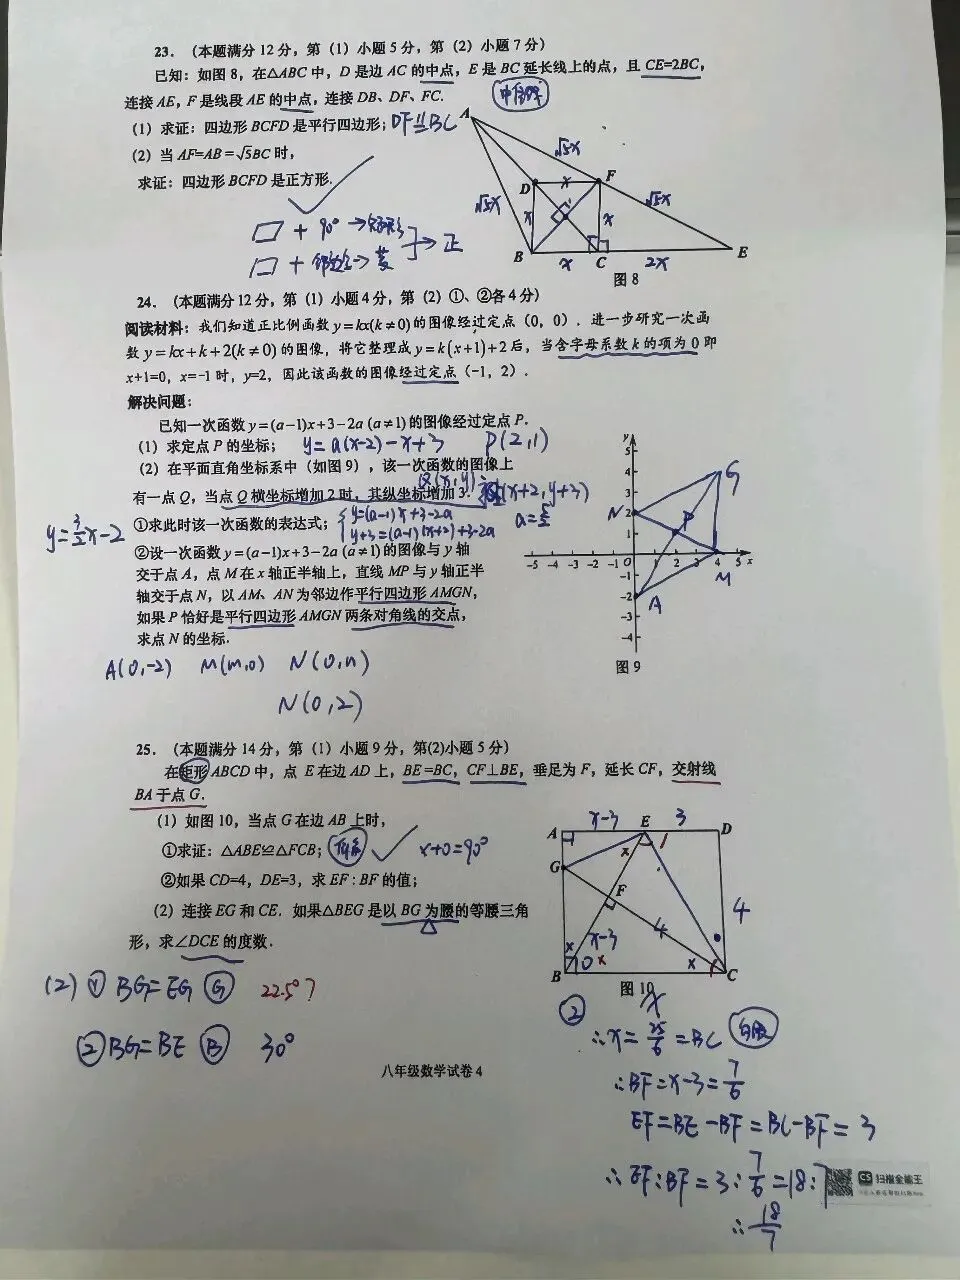 23. (本题满分12分，第（1）小题5分，第（2）小题7分)
已知：如图8，在△ABC中，D是边AC的中点，E是BC延长线上的点，且CE=2BC，
连接AE，F是线段AE的中点，连接DB、DF、FC.
(1) 求证：四边形BCFD是平行四边形；
(2) 当AF=AB=√5BC时，
求证：四边形BCFD是正方形.
▱ + 90° →矩形
▱ + 邻边 → 菱
→ 正
A
√5x
√5x
√5x
D x F
x x
B x C 2x E
图8
24. (本题满分12分，第（1）小题4分，第（2）①、②各4分)
阅读材料：我们知道正比例函数y=kx(k≠0)的图像经过定点（0，0）. 进一步研究一次函
数y=kx+k+2(k≠0)的图像，将它整理成y=k(x+1)+2后，当含字母系数k的项为0即
x+1=0，x=-1时，y=2，因此该函数的图像经过定点（-1，2）.
解决问题：
已知一次函数y=(a-1)x+3-2a (a≠1)的图像经过定点P.
(1) 求定点P的坐标； y=a(x-2)-x+3 P(2,1)
(2) 在平面直角坐标系中（如图9），该一次函数的图像上
Q(x,y)
有一点Q，当点Q横坐标增加2时，其纵坐标增加3. (x+2,y+3)
①求此时该一次函数的表达式； y=(a-1)x+3-2a
y+3=(a-1)(x+2)+3-2a
a=5/2
y=3/2x-2
②设一次函数y=(a-1)x+3-2a (a≠1)的图像与y轴
交于点A，点M在x轴正半轴上，直线MP与y轴正半
轴交于点N，以AM、AN为邻边作平行四边形AMGN，
如果P恰好是平行四边形AMGN两条对角线的交点，
求点N的坐标.
A(0,-2) M(m,0) N(0,n)
N(0,2)
y
5
4 G
3
N 2 P
1
-5 -4 -3 -2 -1 O 1 2 3 4 5 x
-1 M
-2 A
-3
-4
图9
25. (本题满分14分，第（1）小题9分，第(2)小题5分)
在矩形ABCD中，点E在边AD上，BE=BC，CF⊥BE，垂足为F，延长CF，交射线
BA于点G.
(1) 如图10，当点G在边AB上时，
①求证：△ABE≌△FCB； x+0=90°
②如果CD=4，DE=3，求EF:BF的值；
(2) 连接EG和CE. 如果△BEG是以BG为腰的等腰三角
形，求∠DCE的度数.
(2) ① BG=EG G 22.5°?
② BG=BE B 30°
x-3 3
A E D
G x
F 4
4
x x-3
B 0 x x C
图10
x
② ∴x=25/6=BC 勾股
∴BF=x-3=7/6
EF=BE-BF=BC-BF=3
∴EF:BF=3:7/6=18:7
∴18/7
八年级数学试卷4
CS 扫描全能王